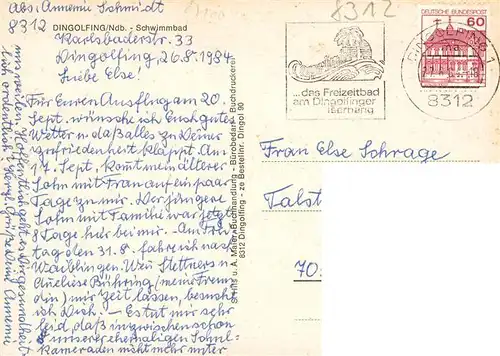 Abs: Annemie Schmidt
8312
DINGOLFING/Ndb. - Schwimmbad
Karlsbaderstr. 33
Dingolfing, 26.8.1984
Liebe Else!
Für Euren Ausflug am 20.
Sept. wünsche ich Euch gutes
Wetter u. daß alles zu Deiner
Zufriedenheit klappt. Am
17. Sept. kommt mein älterer
Sohn mit Frau auf ein paar
Tage zu mir. Der jüngere
Sohn mit Familie war jetzt
8 Tage hier bei mir. - Am Frei
tag den 31.8. fahre ich nach
Waiblingen. Wenn Stettners u.
Aneliese Bühring (meine Freun
din) mir Zeit lassen, besuche
ich Dich. - Es tut mir sehr
leid, daß inzwischen schon
unserer ehemaligen Schul-
kameraden nicht mehr unter
uns weilen. Hoffentlich geht es Dir gesundheit
lich ordentlich. Herzl. Grüße Deine Annemie
S. Hins u. A. Maier, Buchhandlung - Bürobedarf - Buchdruckerei
8312 Dingolfing - ze Bestellnr. Dingol 90
8312
...das Freizeitbad
am Dingolfinger
Isarhang
DINGOLFING 1
8312
DEUTSCHE BUNDESPOST
60
Frau Else Schrage
Talst
70